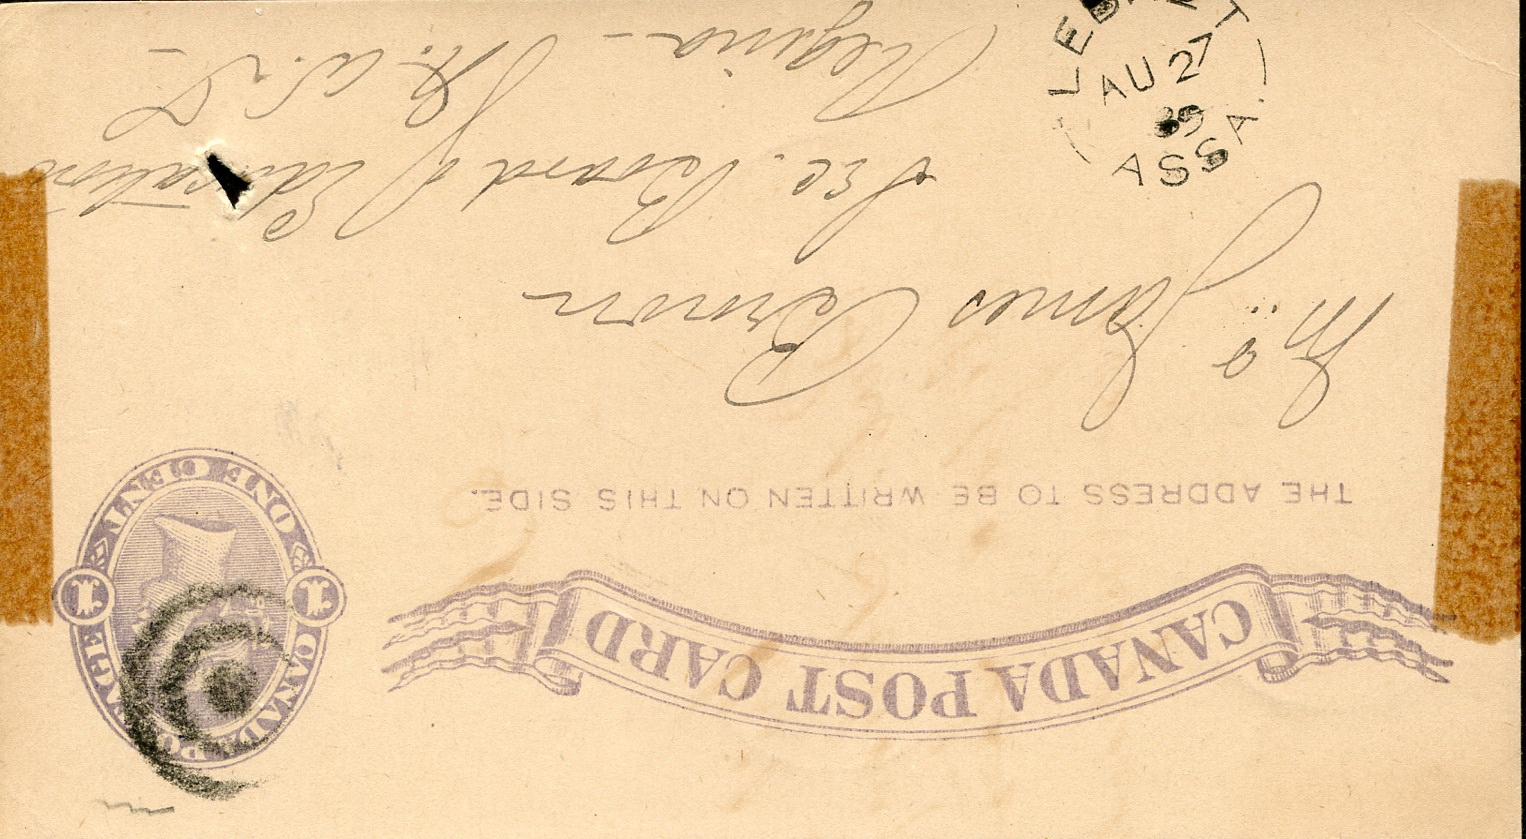 CANADA POST CARD
CANADA POSTAGE
ONE CENT
1 1
THE ADDRESS TO BE WRITTEN ON THIS SIDE.
Mr. James Brown
Sec. Board of Education
Regina -
N. W. T.
AU 27
89
ASSA.